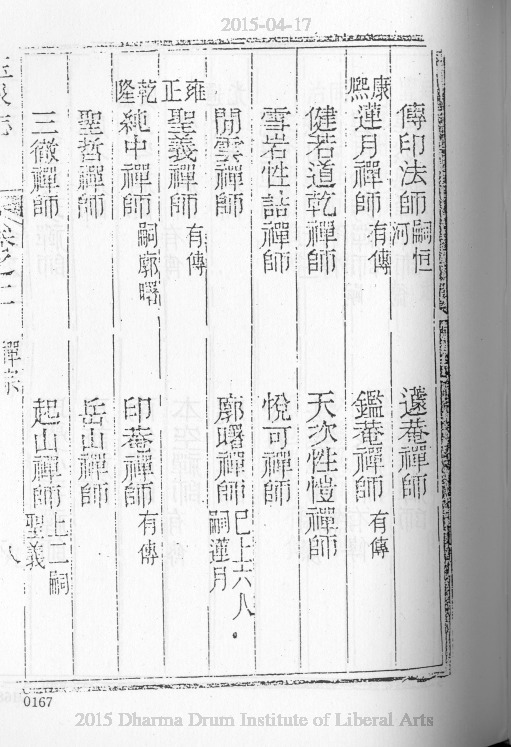 2015-04-17
傳印法師嗣恒河　遠菴禪師
康熙蓮月禪師有傳　鑑菴禪師有傳
健若道乾禪師　天次性愷禪師
雪岩性喆禪師　悅可禪師
閒雲禪師　廓曙禪師已上六人嗣蓮月
雍正聖義禪師有傳
乾隆純中禪師嗣廓曙　印菴禪師有傳
聖哲禪師　岳山禪師
三徹禪師　起山禪師上二嗣聖義
卷之二　禪宗　八
0167
2015 Dharma Drum Institute of Liberal Arts